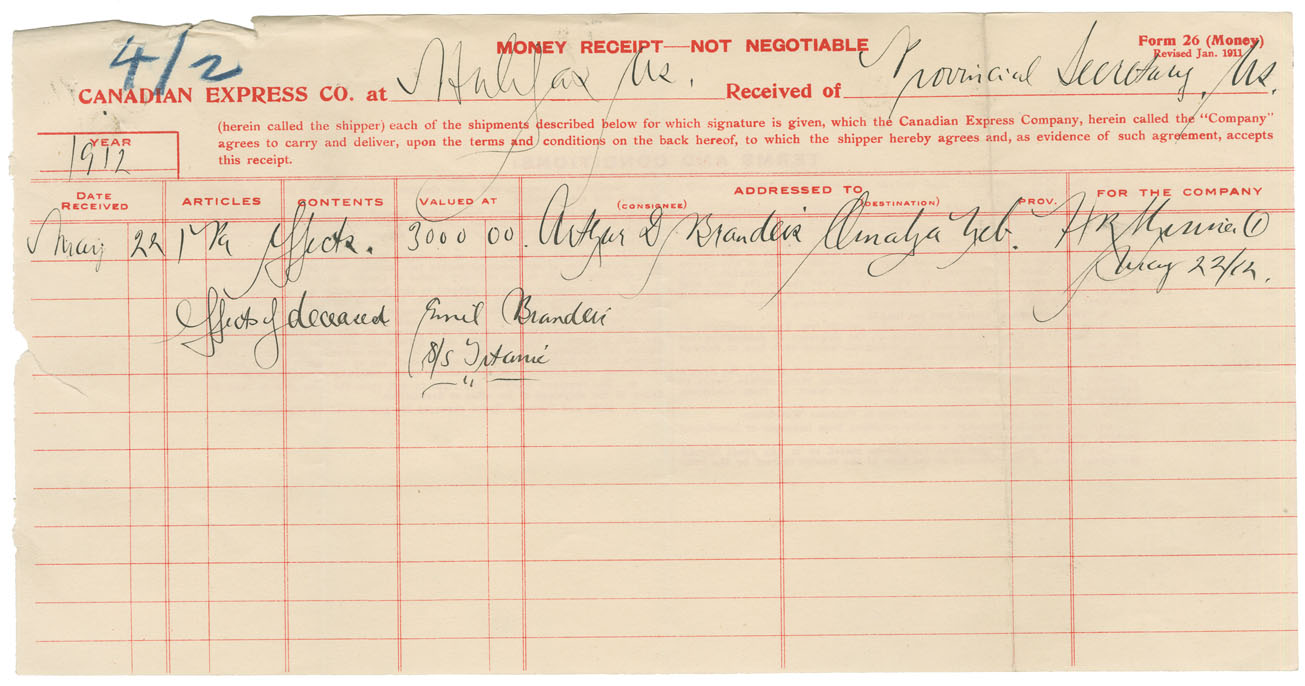 4/2
MONEY RECEIPT—NOT NEGOTIABLE
Form 26 (Money)
Revised Jan. 1911
CANADIAN EXPRESS CO. at Halifax Ns. Received of Provincial Secretary, Ns.
(herein called the shipper) each of the shipments described below for which signature is given, which the Canadian Express Company, herein called the "Company"
agrees to carry and deliver, upon the terms and conditions on the back hereof, to which the shipper hereby agrees and, as evidence of such agreement, accepts
this receipt.
YEAR
1912
DATE RECEIVED ARTICLES CONTENTS VALUED AT ADDRESSED TO (CONSIGNEE) (DESTINATION) PROV. FOR THE COMPANY
May 22 1 Pkg Effects. 3000 00 Arthur D Brandeis Omaha Neb. HR
May 22/12.
Effects of deceased Emil Brandeis
S/S Titanic